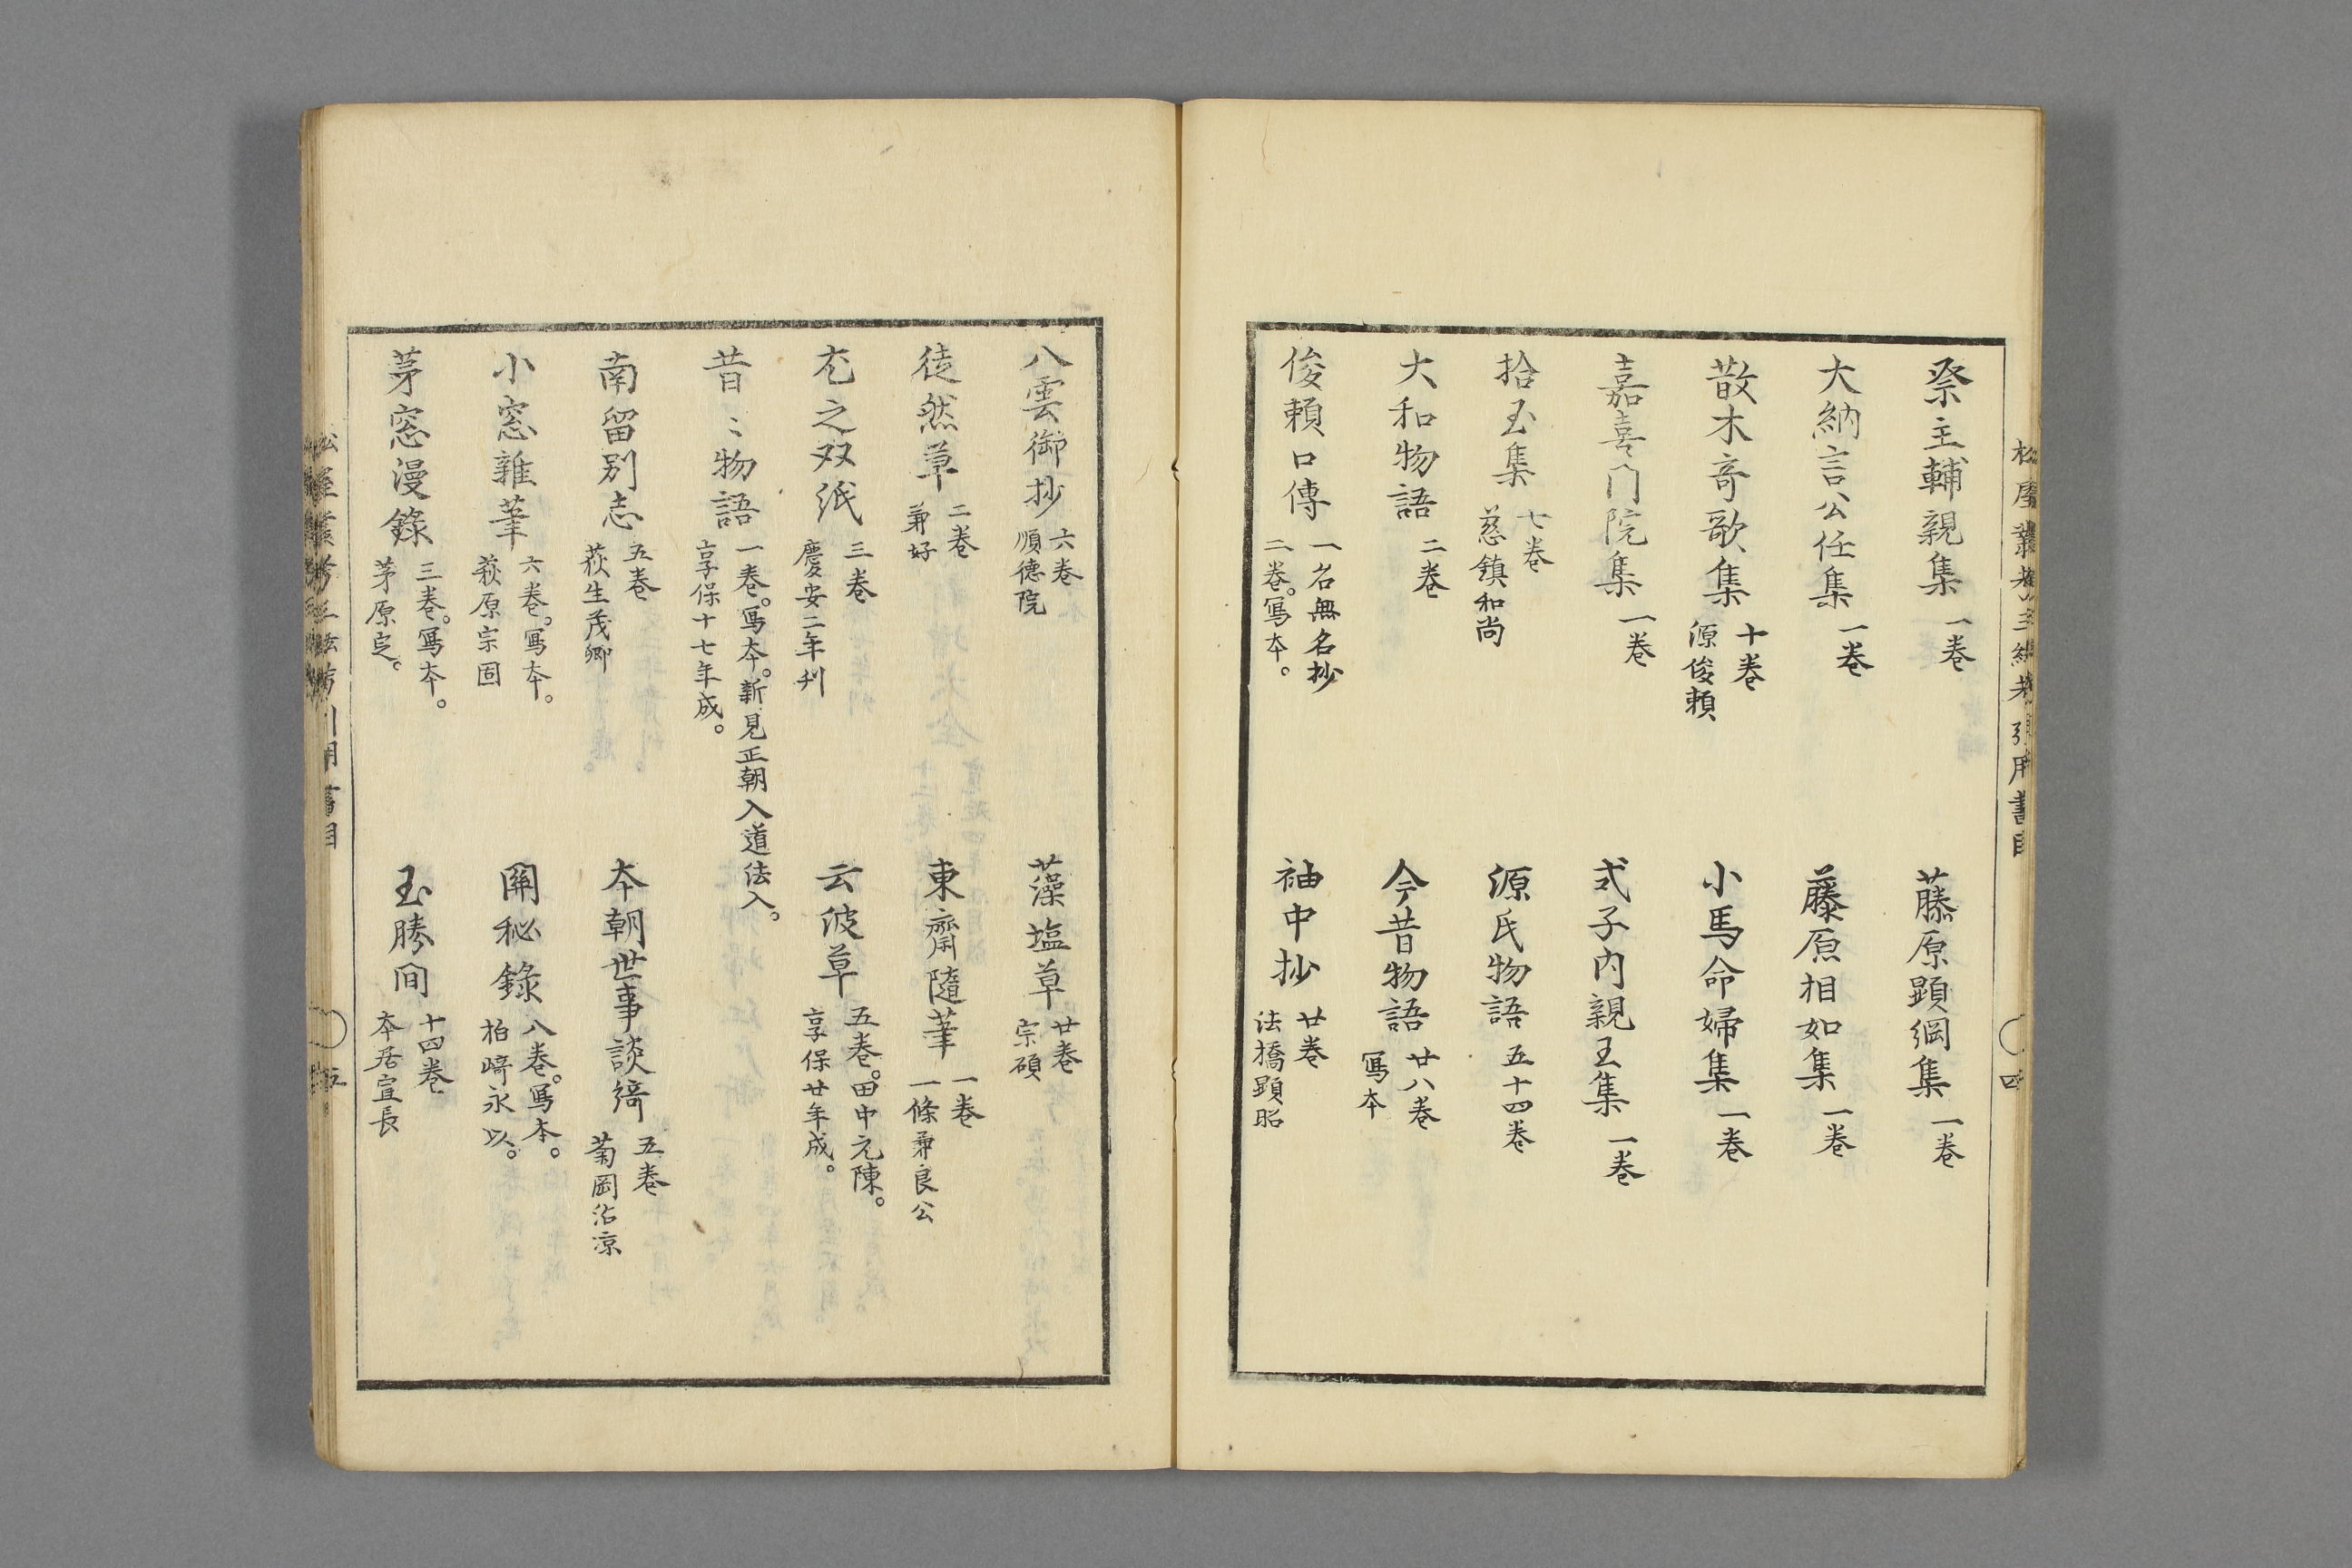 祭主輔親集 一巻
藤原顕綱集 一巻
大納言公任集 一巻
藤原相如集 一巻
散木奇歌集 十巻 源俊頼
小馬命婦集 一巻
嘉喜门院集 一巻
式子内親王集 一巻
拾玉集 七巻 慈鎮和尚
源氏物語 五十四巻
大和物語 二巻
今昔物語 廿八巻 写本
俊頼口傳 一名無名抄 二巻。写本。
袖中抄 廿巻 法橋顕昭
四
八雲御抄 六巻 順徳院
藻塩草 廿巻 宗碩
徒然草 二巻 兼好
東齋隨筆 一巻 一條兼良公
尤之双紙 三巻 慶安二年刊
云波草 五巻。田中元陳。 享保廿年成。
昔〻物語 一巻。写本。新見正朝入道法入。 享保十七年成。
南留別志 五巻 荻生茂卿
本朝世事談綺 五巻 菊岡沾凉
小窓雜筆 六巻。写本。 萩原宗固
閑秘錄 八巻。写本。 柏﨑永以。
茅窓漫錄 三巻。写本。 茅原定。
玉勝间 十四巻 本居宣長
五